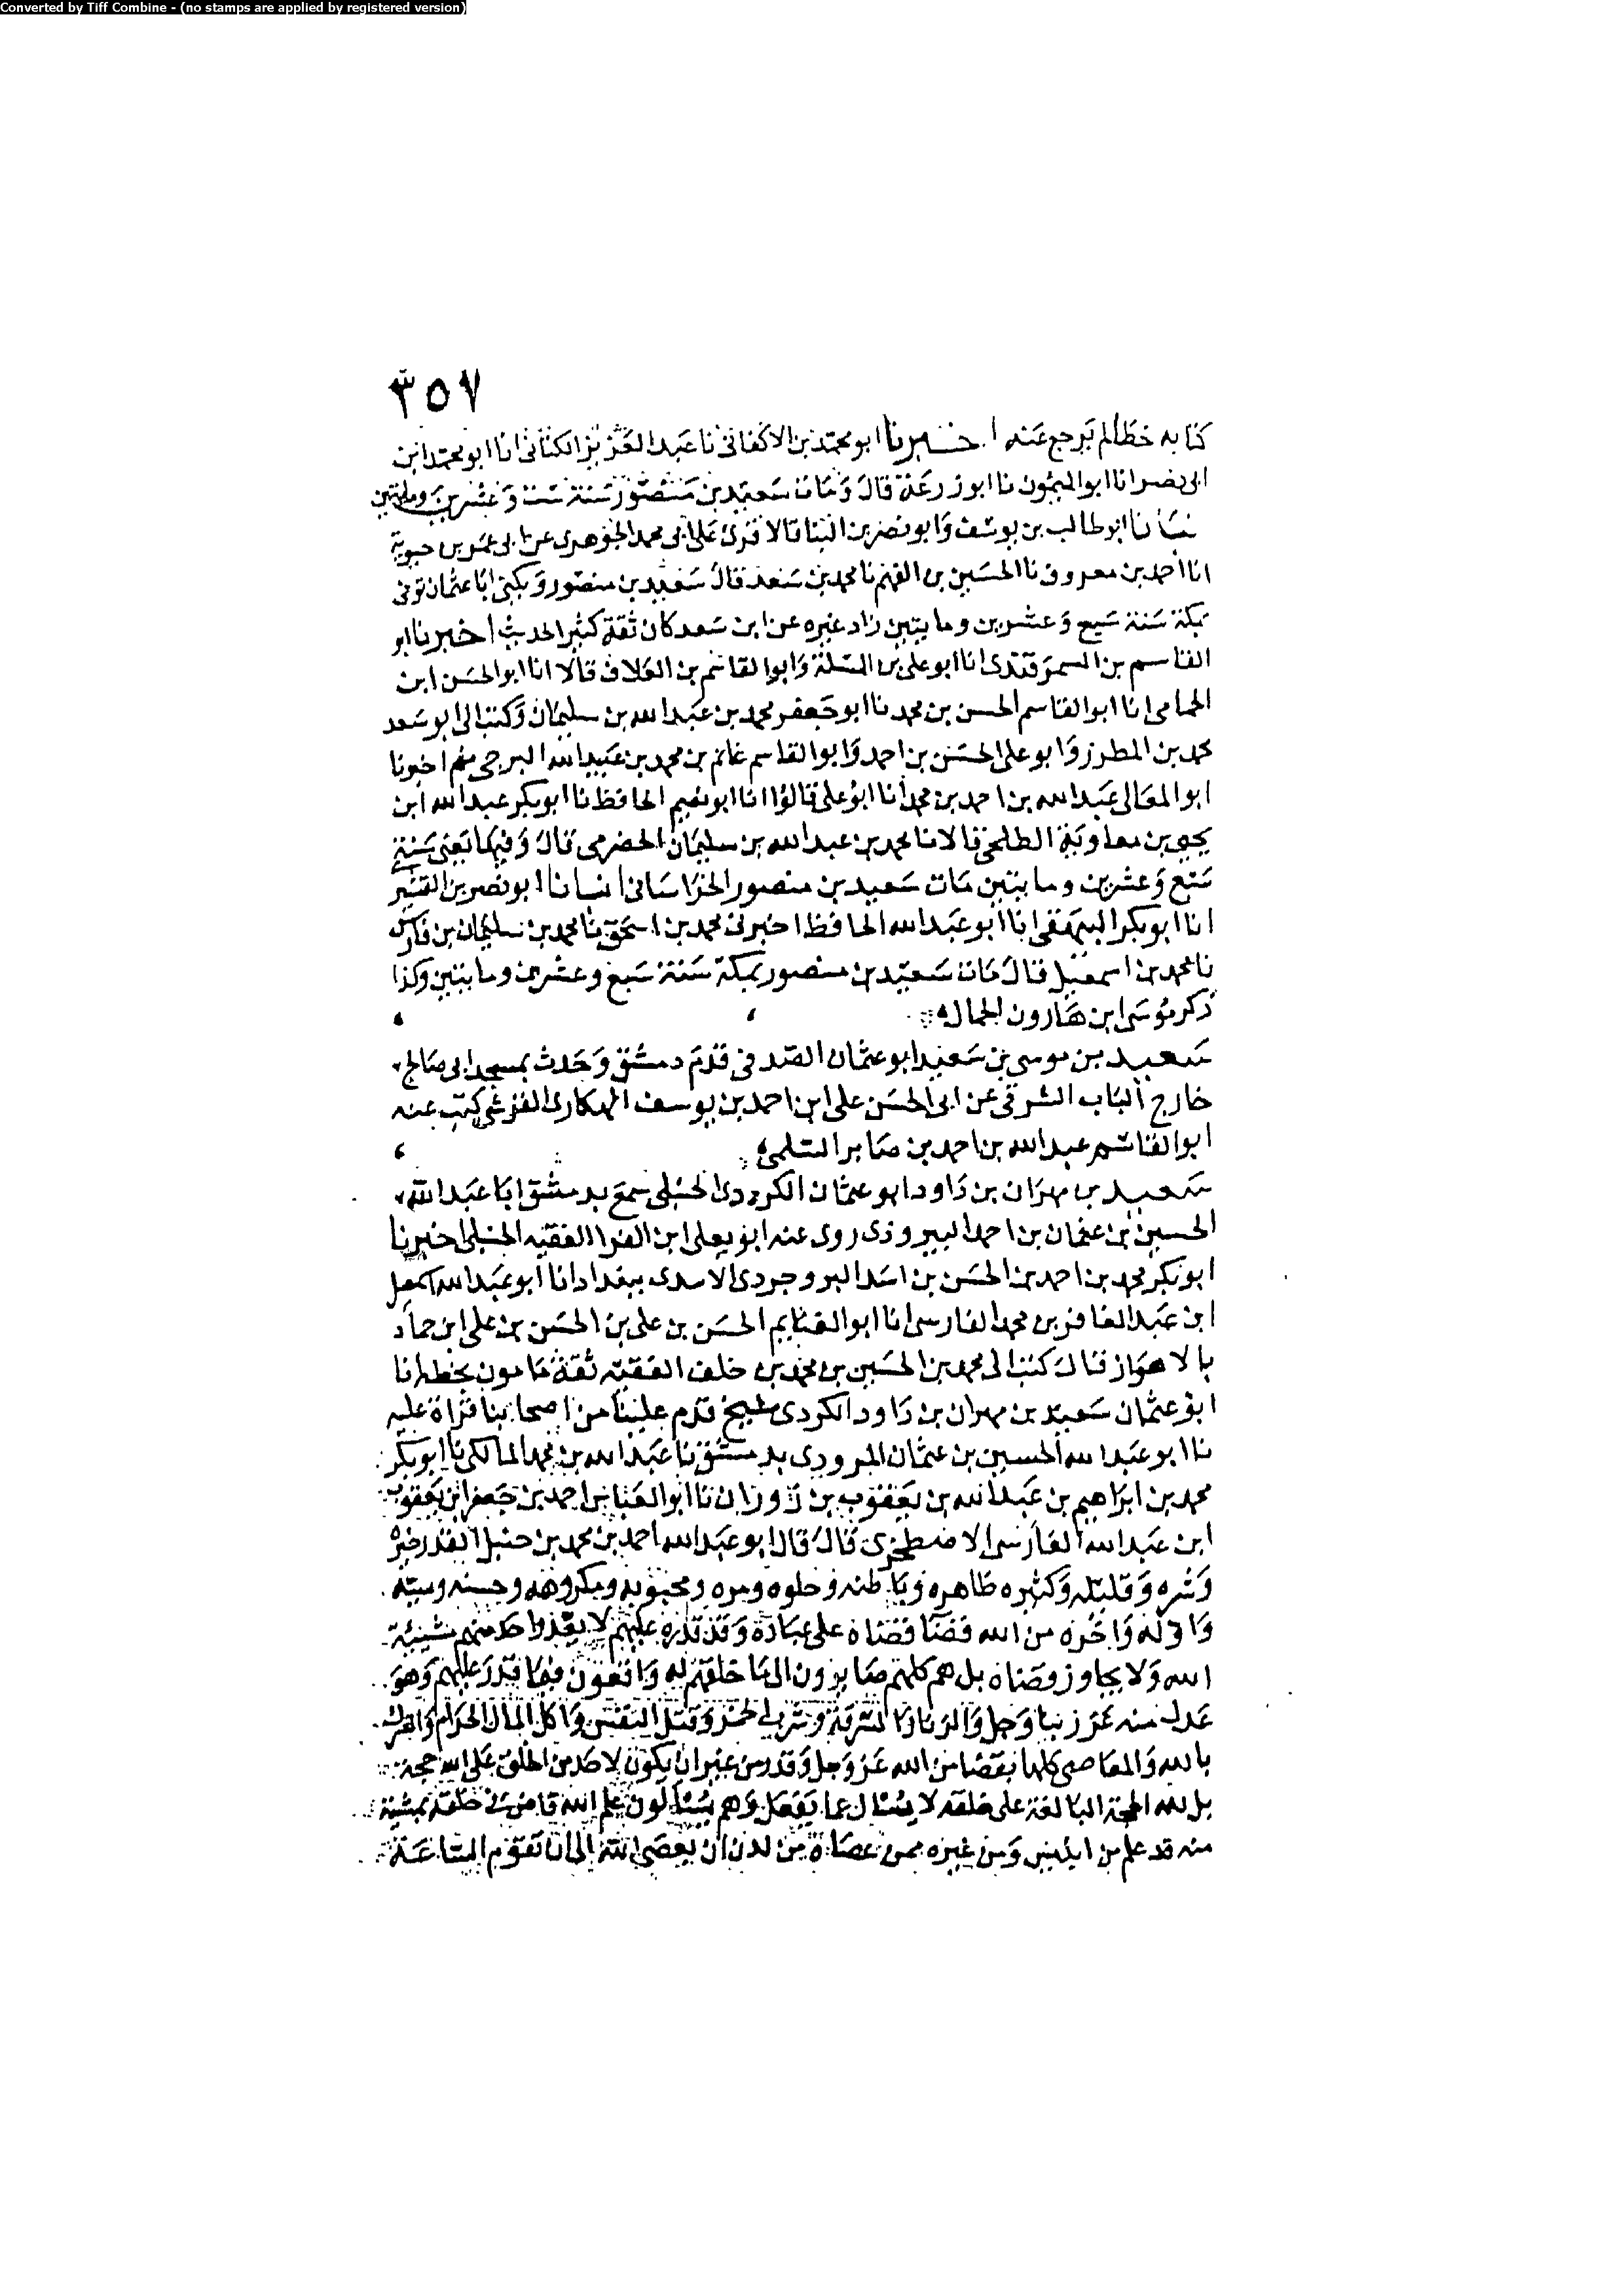 Converted by Tiff Combine - (no stamps are applied by registered version)
٣٥٧
كتابه خطا لم يرجع عنه اخبرنا ابو محمد بن الاكفانى نا عبد العزيز الكتانى انا ابو محمد ابن
ابى نصر انا ابو الميمون نا ابو زرعة قال ومات سعيد بن منصور سنة ست وعشرين ومايتين
انبانا ابو طالب بن يوسف وابو نصر بن البنا قالا قرئ على ابى محمد الجوهرى عن ابى عمر بن حيوية
انا احمد بن معروف نا الحسين بن الفهم نا محمد بن سعد قال سعيد بن منصور ويكنى ابا عثمان توفى
بمكة سنة سبع وعشرين ومايتين زاد غيره عن ابن سعد كان ثقة كثير الحديث اخبرنا ابو
القاسم بن السمرقندى انا ابو على بن المسلمة وابو القاسم بن العلاف قالا انا ابو الحسن ابن
الحمامى انا ابو القاسم الحسن بن محمد نا ابو جعفر محمد بن عبد الله بن سليمان وكتب الى ابو سعد
محمد بن المطرز وابو على الحسن بن احمد وابو القاسم غانم بن محمد بن عبيد الله البرجى ثم اخبرنا
ابو المعالى عبد الله بن احمد بن محمد انا ابو على قالوا انا ابو نعيم الحافظ نا ابو بكر عبد الله ابن
يحيى بن معاوية الطلحى قالا نا محمد بن عبد الله بن سليمان الحضرمى قال وفيها يعنى سنة
سبع وعشرين ومايتين مات سعيد بن منصور الخراسانى انبانا ابو نصر بن القشيرى
انا ابو بكر البيهقى انا ابو عبد الله الحافظ اخبرنى محمد بن اسحق نا محمد بن سليمان بن فارس
نا محمد بن اسمعيل قال مات سعيد بن منصور بمكة سنة سبع وعشرين ومايتين وكذا
ذكر موسى ابن هارون الجمال
سعيد بن موسى بن سعيد ابو عثمان الصدفى قدم دمشق وحدث بمسجد ابى صالح
خارج الباب الشرقى عن ابى الحسن على ابن احمد بن يوسف الهكارى القرشى كتب عنه
ابو القاسم عبد الله بن احمد بن صابر السلمى
سعيد بن مهران بن داود ابو عثمان الكردى الحنبلى سمع بدمشق ابا عبد الله
الحسين بن عثمان بن احمد اليبرودى روى عنه ابو يعلى ابن الفرا الفقيه الحنبلى اخبرنا
ابو بكر محمد بن احمد بن الحسن بن اسد البروجردى الاسدى ببغداد انا ابو عبد الله اسمعيل
ابن عبد الغافر بن محمد الفارسى انا ابو الغنايم الحسن بن على بن الحسن بن على ابن حماد
بالاهواز قال كتب الى محمد بن الحسين بن محمد بن خلف الفقيه ثقة مامون بخطه انا
ابو عثمان سعيد بن مهران بن داود الكردى شيخ قدم علينا من اصحابنا قراة عليه
نا ابو عبد الله الحسين بن عثمان اليبرودى بدمشق نا عبد الله بن محمد المالكى نا ابو بكر
محمد بن ابراهيم بن عبد الله بن يعقوب بن زوزان نا ابو العباس احمد بن جعفر ابن يعقوب
ابن عبد الله الفارسى الاصطخرى قال قال ابو عبد الله احمد بن محمد بن حنبل القدر خيره
وشره وقليله وكثيره ظاهره وباطنه وحلوه ومره ومحبوبه ومكروهه وحسنه وسيئه
واوله واخره من الله قضا قضاه على عباده وقدر قدره عليهم لا يعدوا احد منهم مشيئة
الله ولا يجاوز قضاه بل هم كلهم صايرون الى ما خلقهم له واقعون فيما قدر عليهم وهو
عدل منه عز ربنا وجل والزنا والسرقة وشرب الخمر وقتل النفس واكل المال الحرام والشرك
بالله والمعاصى كلها بقضا من الله عز وجل وقدر من غير ان يكون لاحد من الخلق على الله حجة
بل لله الحجة البالغة على خلقه لا يسئل عما يفعل وهم يسئلون علم الله ماض فى خلقه بمشية
منه قد علم من ابليس ومن غيره ممن عصاه من لدن ان يعصى الله الى ان تقوم الساعة